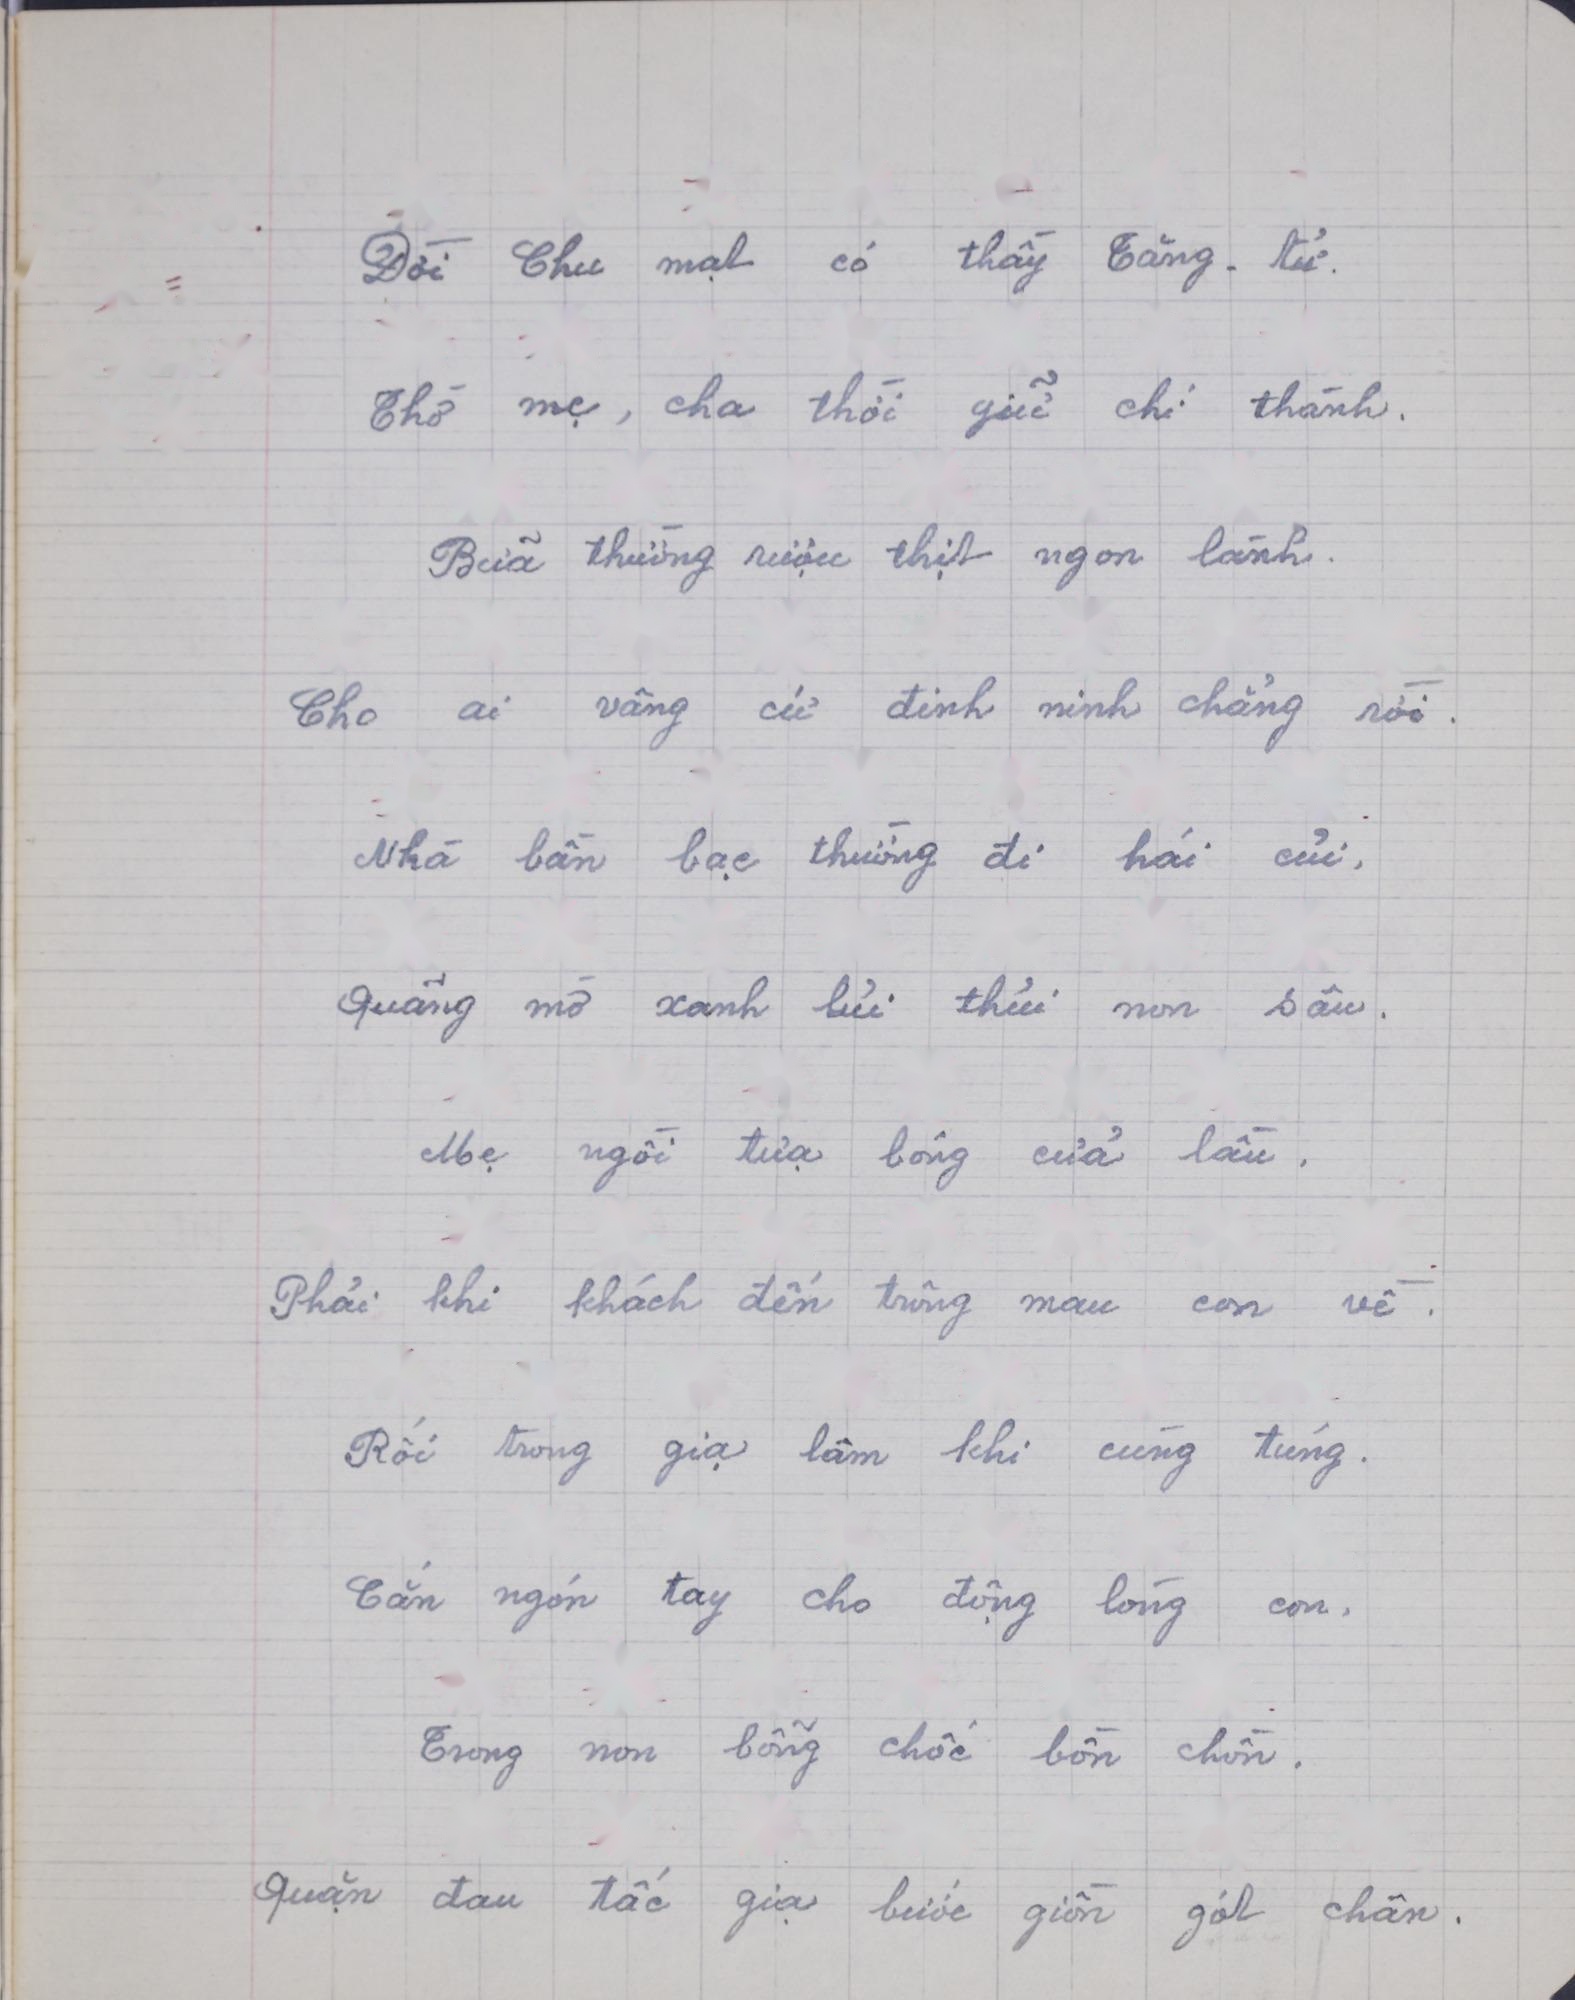 Đời Chu mạt có thầy Tăng-tử.
Thờ mẹ, cha thời giữ chí thành.
Bữa thường rượu thịt ngon lành.
Cho ai vâng cứ đinh ninh chẳng rời.
Nhà bần bạc thường đi hái củi,
Quãng mờ xanh lủi thủi non sâu.
Mẹ ngồi tựa bóng cửa lầu,
Phải khi khách đến trông mau con về.
Rối trong giạ lâm khi cùng túng.
Cắn ngón tay cho động lòng con,
Trong non bỗng chốc bồn chồn.
Quặn đau tấc giạ bước giồn gót chân.